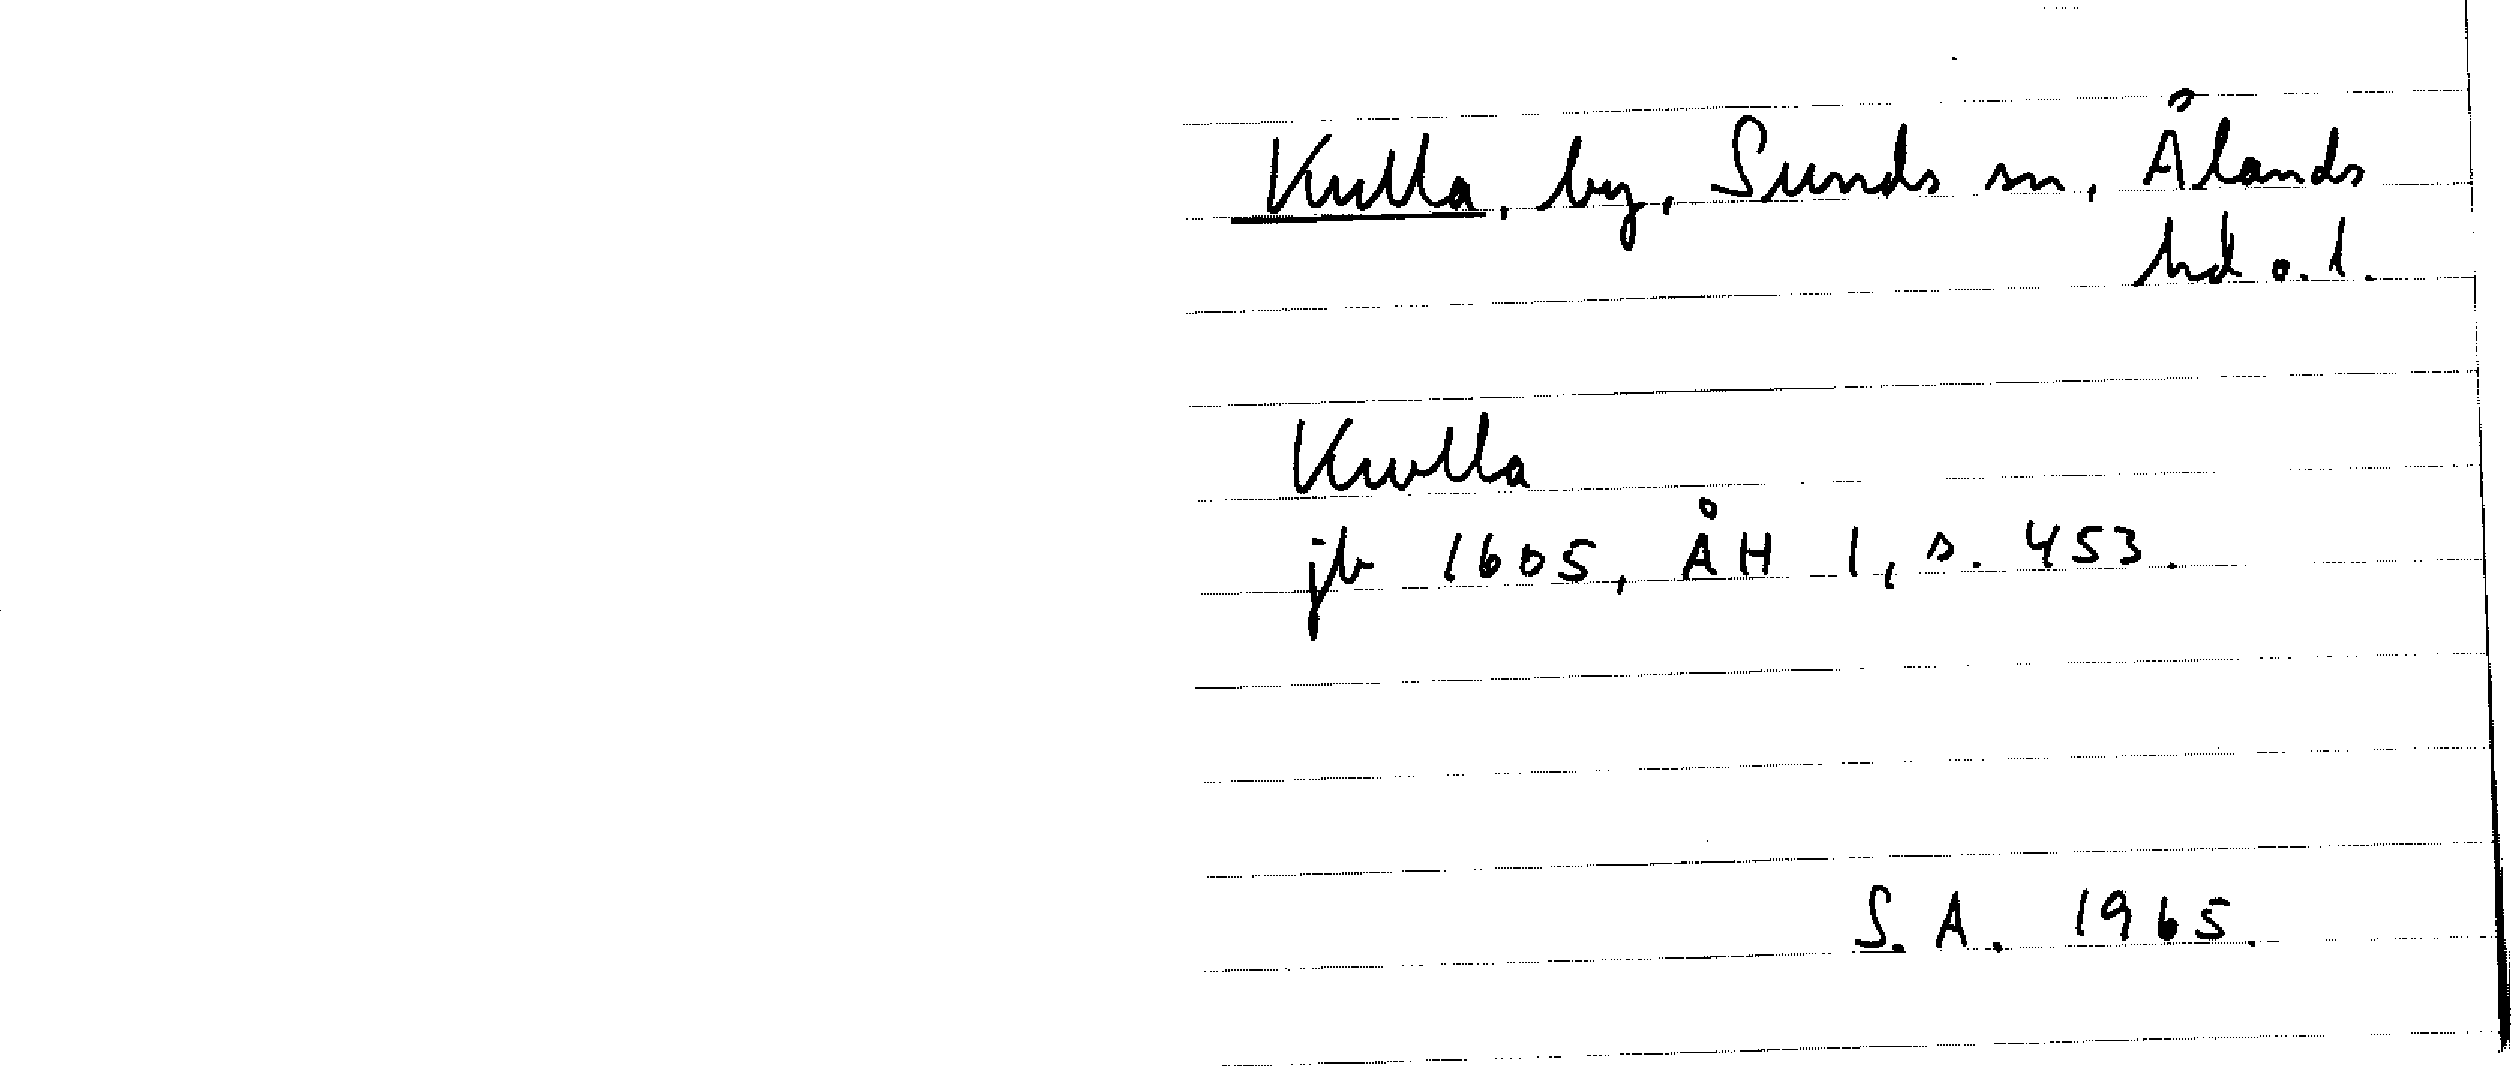 Kulla, by, Sunds sn, Ålands
hd o. l.
Kwlla
jb 1605, ÅH 1, s. 453.
S. A. 1965.